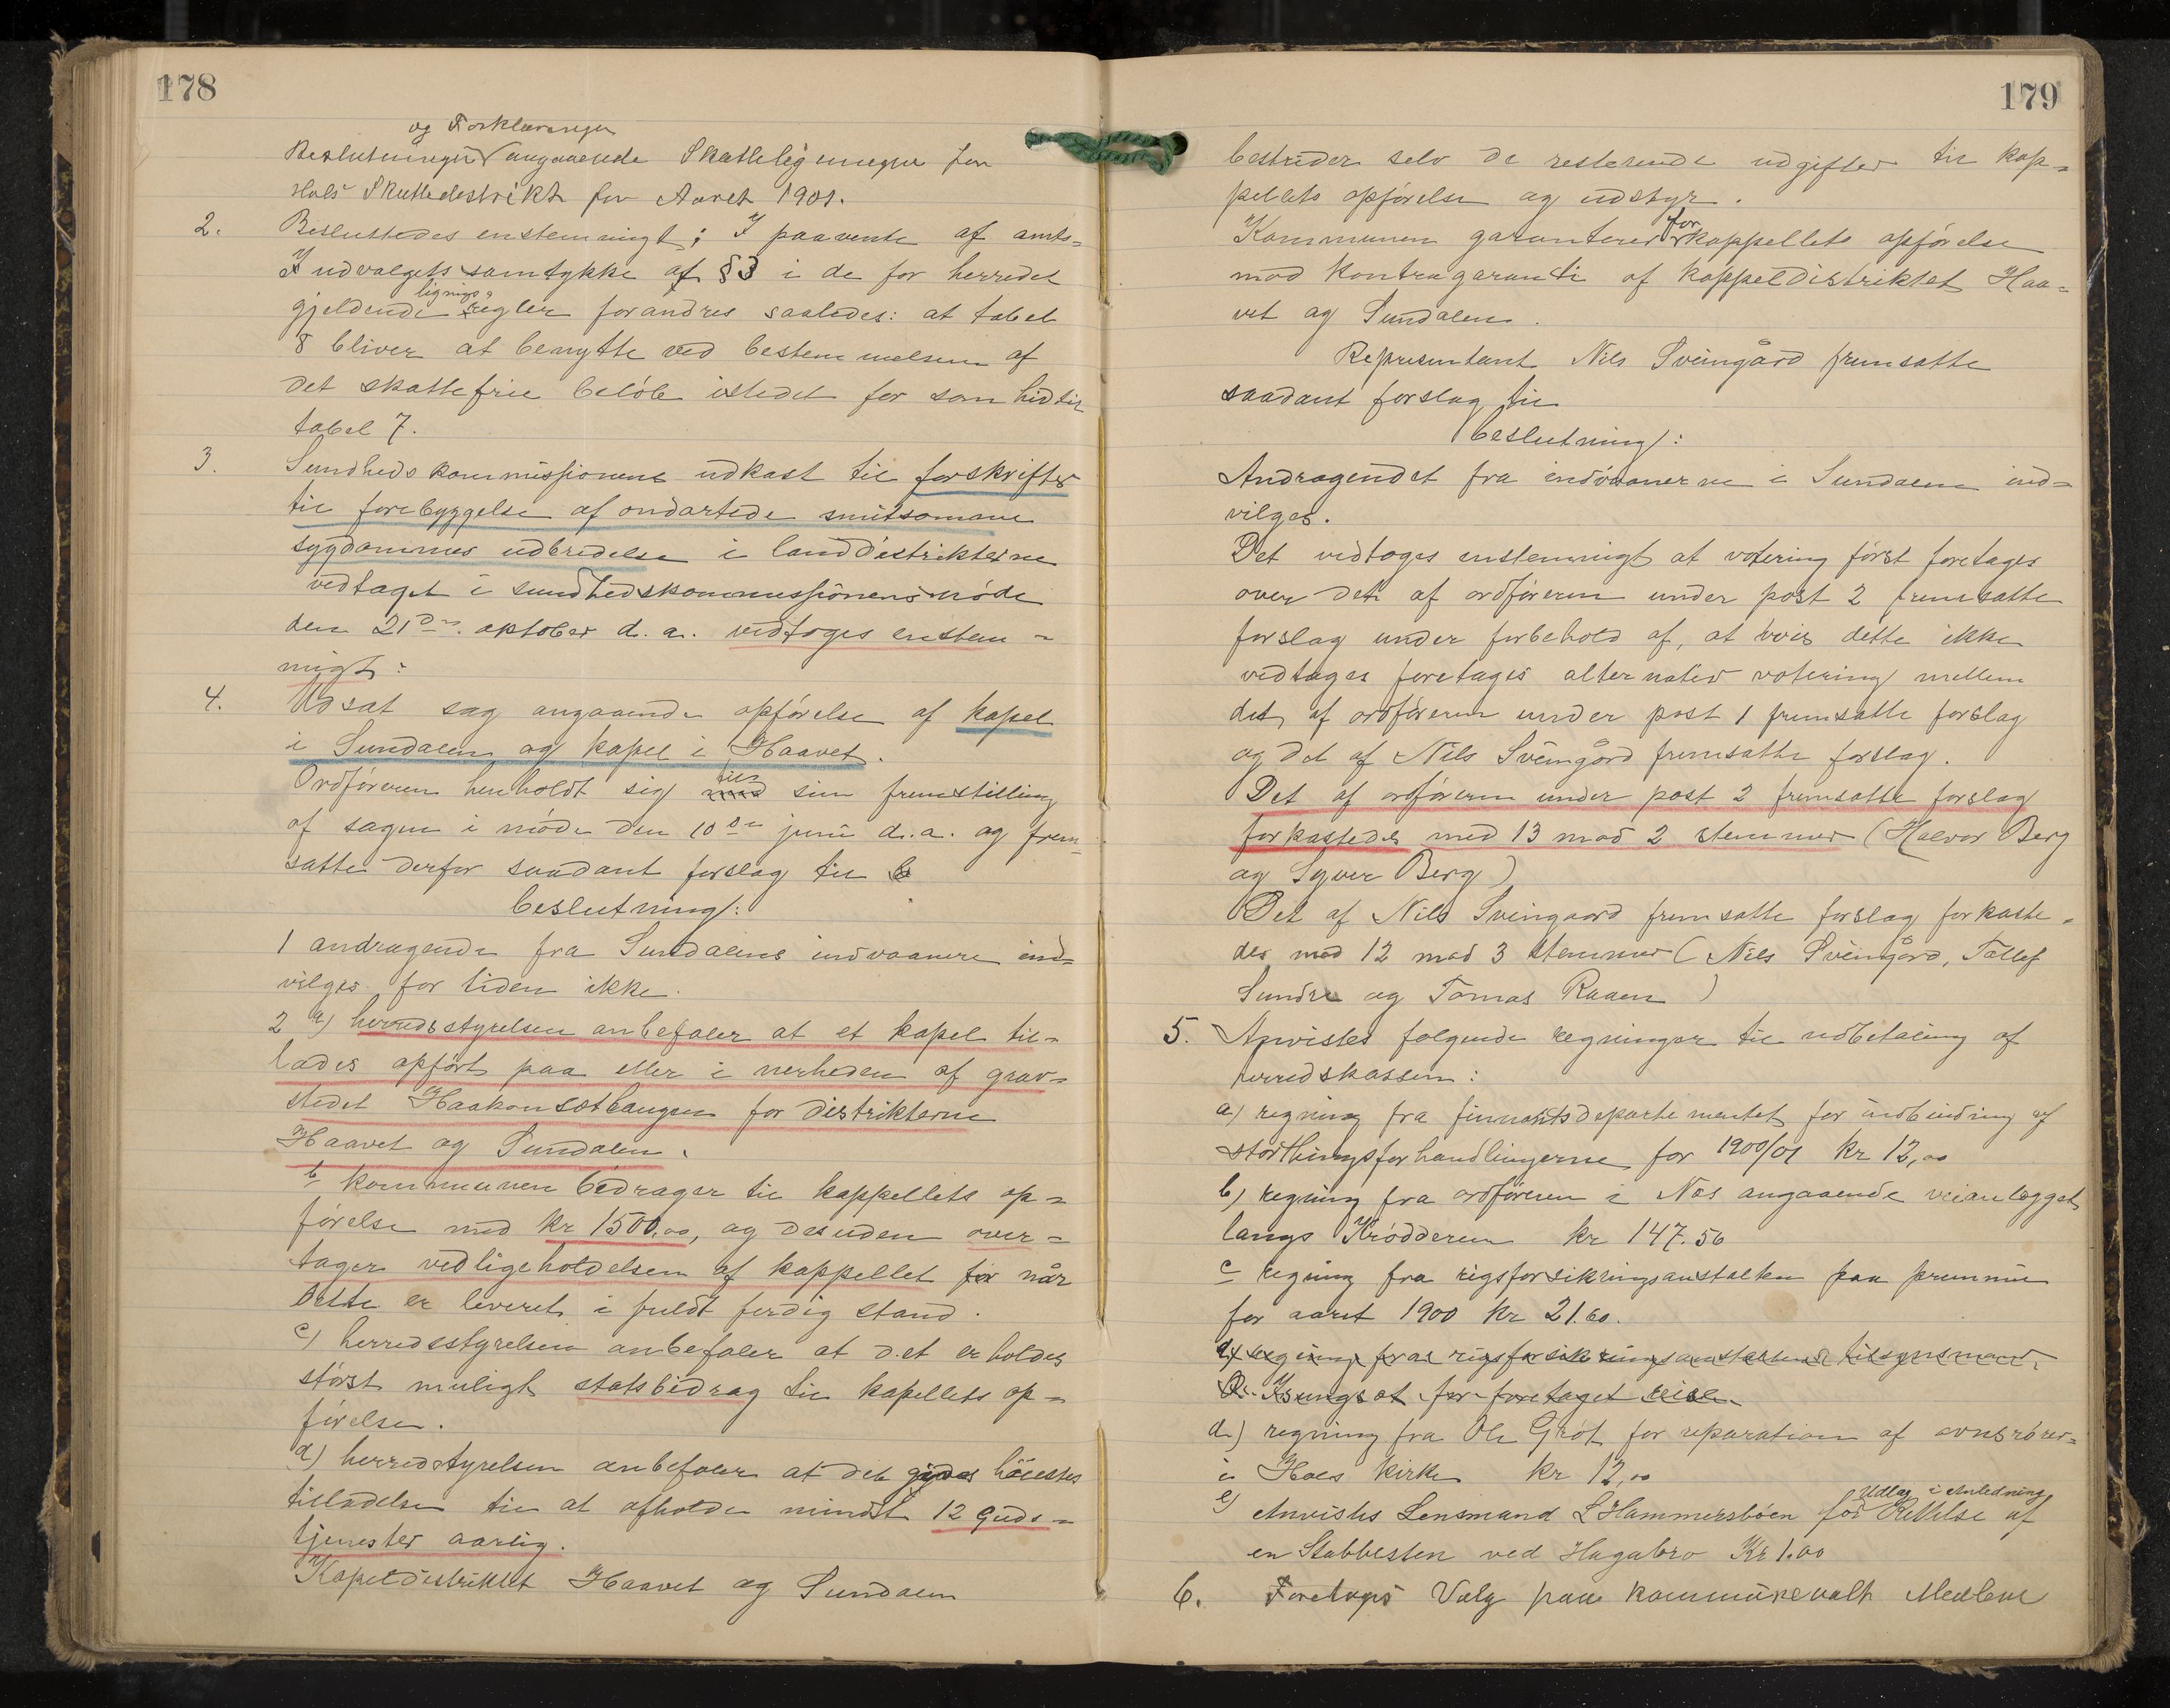 178
og Forklaringer
Beslutninger angaaende Skatteligningen for
Hols Skattedistrikt for Aaret 1901.
2. Besluttedes enstemmigt; I paavente af amts-
udvalgets samtykke af § 3 i de for herredet
lignings-
gjeldende regler forandres saaledes: at tabel
8 bliver at benytte ved bestemmelsen af
det skattefrie beløb istedet for som hidtil
tabel 7.
3. Sundhedskommissionens udkast til forskrifter
til forebyggelse af ondartede smitsomme
sygdommes udbredelse i landdistrikterne
vedtaget i sundhedskommissionens møde
den 21de oktober d. a. vedtoges enstem-
migt:
4. Udsat sag angaaende opførelse af kapel
i Sundalen og kapel i Haavet.
til
Ordføreren henholdt sig med sin fremstilling
af sagen i møde den 10de juni d. a. og frem-
satte derfor saadant forslag til b
beslutning:
1 andragende fra Sundalens indvaanere ind-
vilges for tiden ikke.
2 a) herredsstyrelsen anbefaler at et kapel til-
lades opført paa eller i nerheden af grav-
stedet Haakonsethaugen for distrikterne
Haavet og Sundalen.
b kommunen bidrager til kappellets op-
førelse med kr 1500,00, og desuden over-
tager vedligeholdelsen af kappellet før når
dette er leveret i fuldt ferdig stand.
c) herredsstyrelsen anbefaler at det erholdes
størst muligt statsbidrag til kapellets op-
førelse.
d) herredstyrelsen anbefaler at det gives høiestes
tilladelse til at afholde mindst 12 guds-
tjenester aarlig.
Kapeldistriktet Haavet og Sundalen
179
bestrider selv de resterende udgifter til kap-
pellets opførelse og udstyr.
for
Kommunen garanterer kappellets opførelse
mod kontragaranti af kappeldistriktet Haa-
vet og Sundalen.
Representant Nils Sveingård fremsatte
saadant forslag til
beslutning:
Andragendet fra indvaanerne i Sundalen ind-
vilges.
Det vedtoges enstemmigt at votering først foretages
over det af ordføreren under post 2 fremsatte
forslag under forbehold af, at hvis dette ikke
vedtages foretages alternativ votering mellem
det af ordføreren under post 1 fremsatte forslag
og det af Nils Sveingård fremsatte forslag.
Det af ordføreren under post 2 fremsatte forslag
forkastedes med 13 mod 2 stemmer (Halvor Berg
og Syver Berg)
Det af Nils Sveingaard fremsatte forslag forkaste-
des med 12 mod 3 stemmer (Nils Sveingård, Tollef
Sundre og Tomas Raaen)
5. Anvistes følgende regninger til udbetaling af
herredskassen:
a) regning fra finantsdepartementet for indbinding af
storthingsforhandlingerne for 1900/01 kr 12,00
b) regning fra ordføreren i Nes angaaende veianlægget
langs Krødderen kr 147.56
c regning fra rigsforsikringsanstalten paa premnie
for aaret 1900 kr 21.60.
d) regning fra rigsforsikringsanstaltens tilsynsmand
for foretaget reise
d.) regning fra Ole Grøt for reparation af ovnsrører-
i Hols kirke kr 12,00
Udlæg i Anledning
e) Anvistes Lensmand L Hammersbøen for Rettelse af
en Stabbesten ved Hagabro Kr 1.00
6. Foretoges Valg paa kommunevalte Medlem